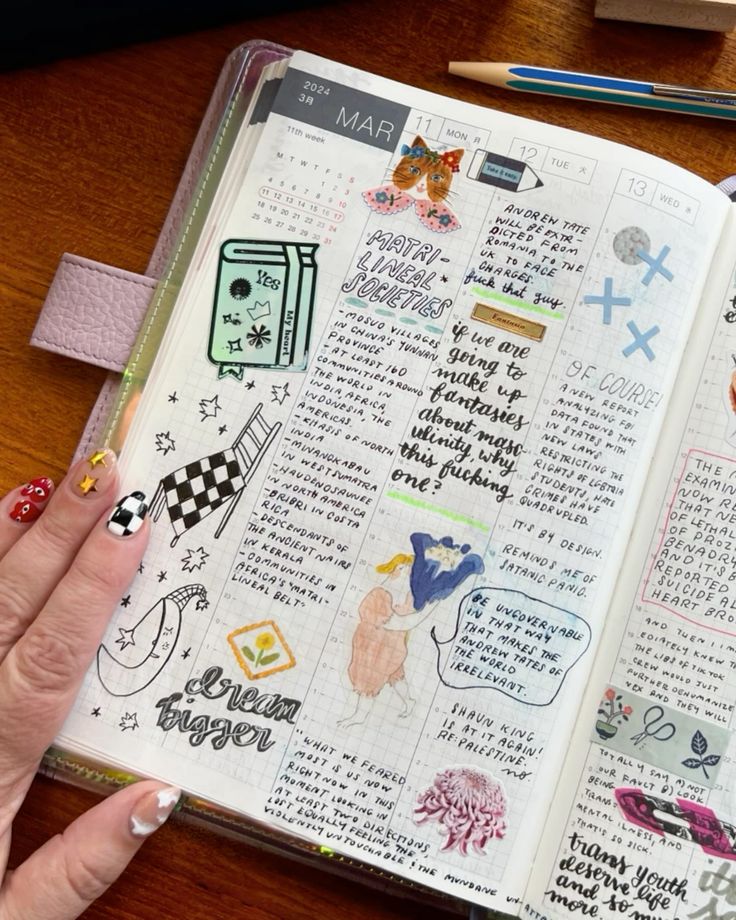 2024
3月
MAR
11th week
M T W T F S S
1 2 3
4 5 6 7 8 9 10
11 12 13 14 15 16 17
18 19 20 21 22 23 24
25 26 27 28 29 30 31
Yes
My heart
dream
bigger
11 MON 月
MATRI-
LINEAL*
SOCIETIES
- MOSUO VILLAGES
IN CHINA'S YUNNAN
PROVINCE
* AT LEAST 160
COMMUNITIES AROUND
THE WORLD IN
INDIA, AFRICA,
INDONESIA, THE
AMERICAS.
- KHASIS OF NORTH
INDIA
- MINANGKABAU
IN WEST SUMATRA
- HAUDENOSAUNEE
IN NORTH AMERICA
- BRIBRI IN COSTA
RICA
- DESCENDANTS OF
THE ANCIENT NAIRS
IN KERALA
- COMMUNITIES IN
AFRICA'S "MATRI-
LINEAL BELT"
"WHAT WE FEARED
MOST IS US NOW
RIGHT NOW IN THIS
MOMENT LOOKING IN
AT LEAST TWO DIRECTIONS,
LOST EQUALLY FEELING THE
VIOLENTLY UNTOUCHABLE & THE MUNDANE
12 TUE 火
Take it easy
ANDREW TATE
WILL BE EXTR-
DICTED FROM
ROMANIA TO THE
UK TO FACE
CHARGES.
fuck that guy.
Fantasia
if we are
going to
make up
fantasies
about masc-
ulinity, why
this fucking
one?
BE UNGOVERNABLE
IN THAT WAY
THAT MAKES THE
ANDREW TATES OF
THE WORLD
IRRELEVANT.
SHAUN KING
IS AT IT AGAIN!
RE: PALESTINE.
no
13 WED 水
OF COURSE!
A NEW REPORT
ANALYZING FBI
DATA FOUND THAT
IN STATES WITH
NEW LAWS
RESTRICTING THE
RIGHTS OF LGBTQIA
STUDENTS, HATE
CRIMES HAVE
QUADRUPLED.
IT'S BY DESIGN.
REMINDS ME OF
SATANIC PANIC.
THE M
EXAMIN
NOW RE
THAT NE
OF LETHAL
OF PROZ
BENADR
AND IT'S B
REPORTED
SUICIDE A
HEART BRO
AND THEN I IMM
EDIATELY KNEW TH
THE LIBS OF TIKTOK
CREW WOULD JUST
FURTHER DEHUMANIZE
NEX AND THEY WILL
TOTALLY SAY A) NOT
OUR FAULT B) LOOK
BEING
TRANS
MENTAL ILLNESS, AND
THAT IS SO SICK.
trans youth
deserve life
and so m
more